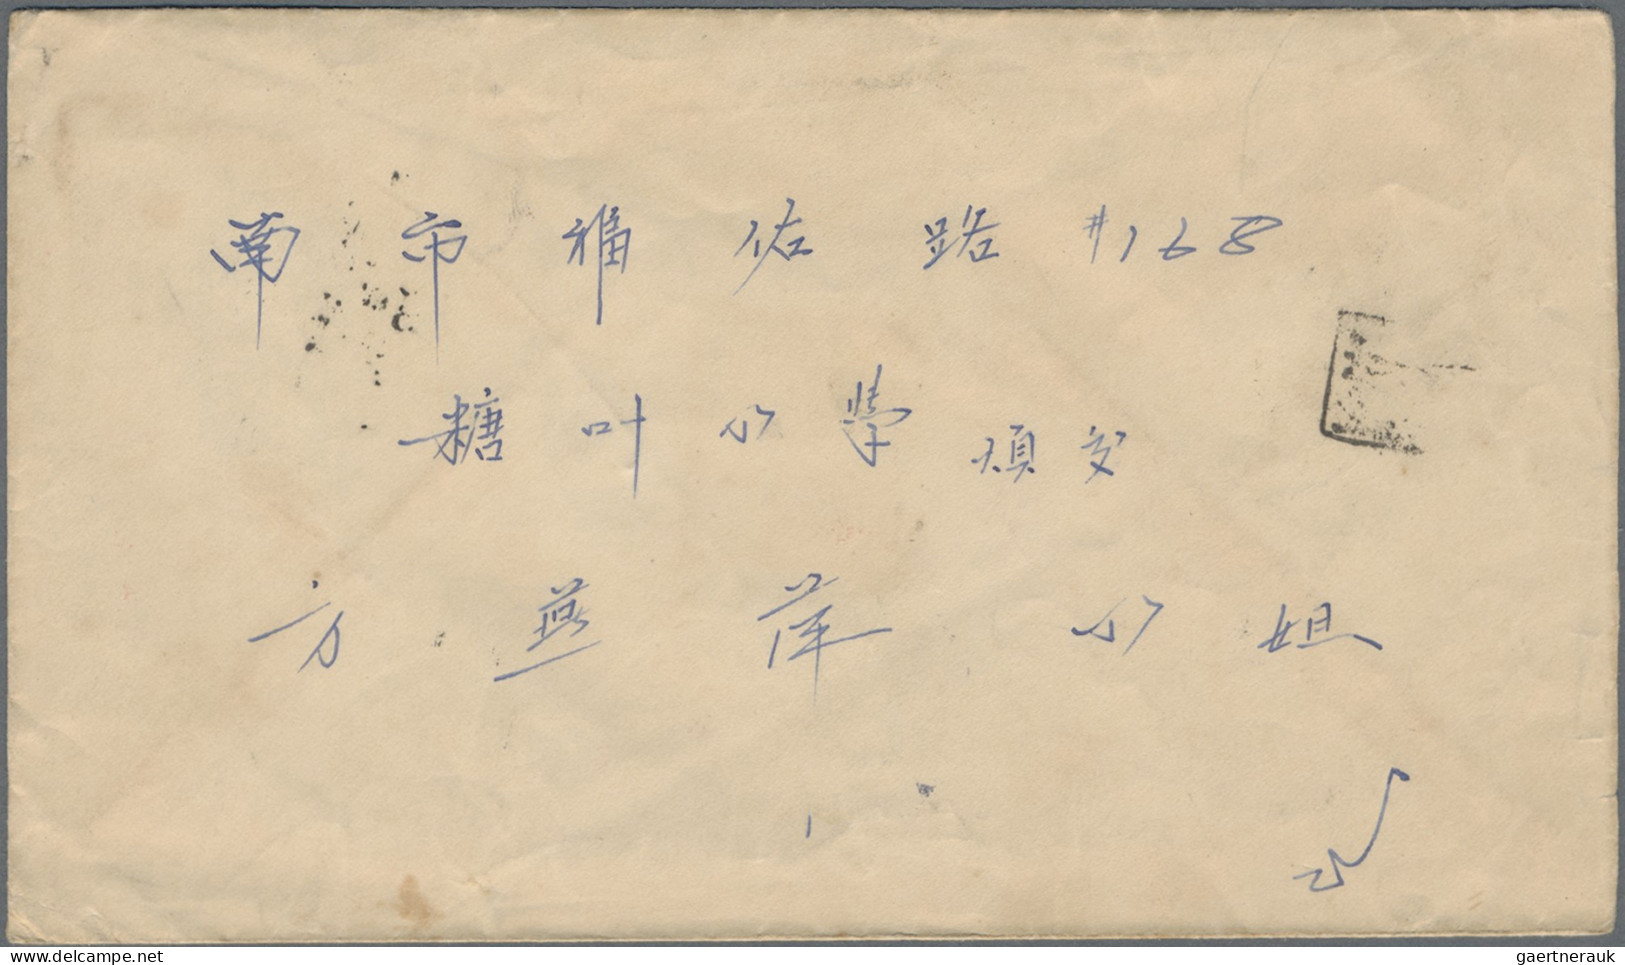 南市福佑路#168
糖叶小學煩交
方燕萍小姐
delcampe.net
gaertnerauk